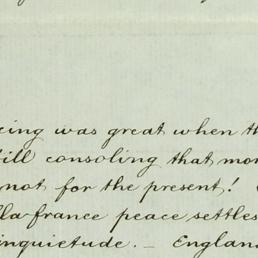 cing was great when th
till consoling that mor
not for the present!
lla-france peace settles
inquietude. — England